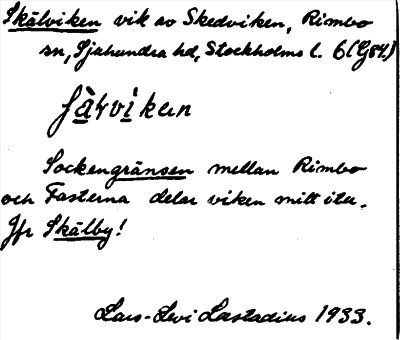 Skälviken vik av Skedviken, Rimbo
sn, Sjuhundra hd, Stockholms l. 6 (G84.)
Sockengränsen mellan Rimbo
och Fasterna delar viken mitt itu.
Jfr Skälby!
Lars-Levi Læstadius 1933.